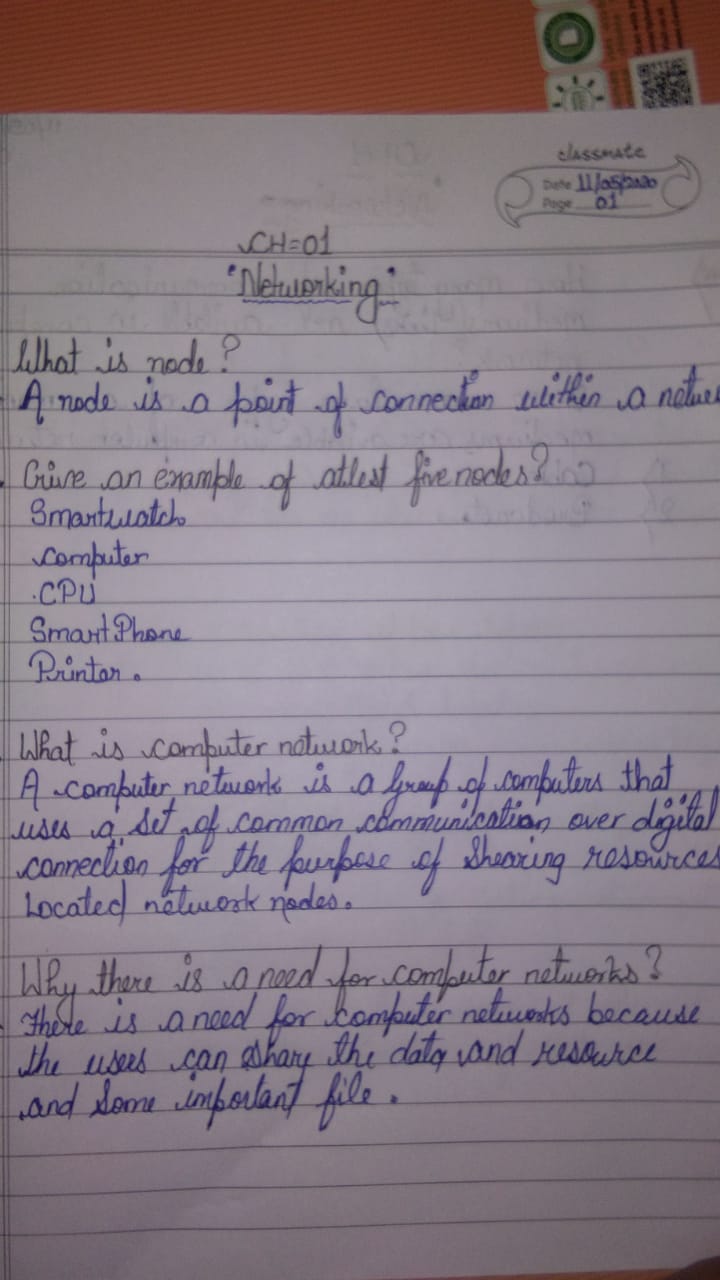 classmate
Date 11/05/2020
Page 01
CH=01
"Networking"
What is node?
A node is a point of connection within a networ
Give an example of atlest five nodes?
Smartwatch
computer
CPU
SmartPhone
Printer.
What is computer network?
A computer network is a group of computers that
uses a set of common communication over digital
connection for the purpose of shearing resources
Located network nodes.
Why there is a need for computer networks?
There is a need for computer networks because
the users can share the data and resource
and some important file.